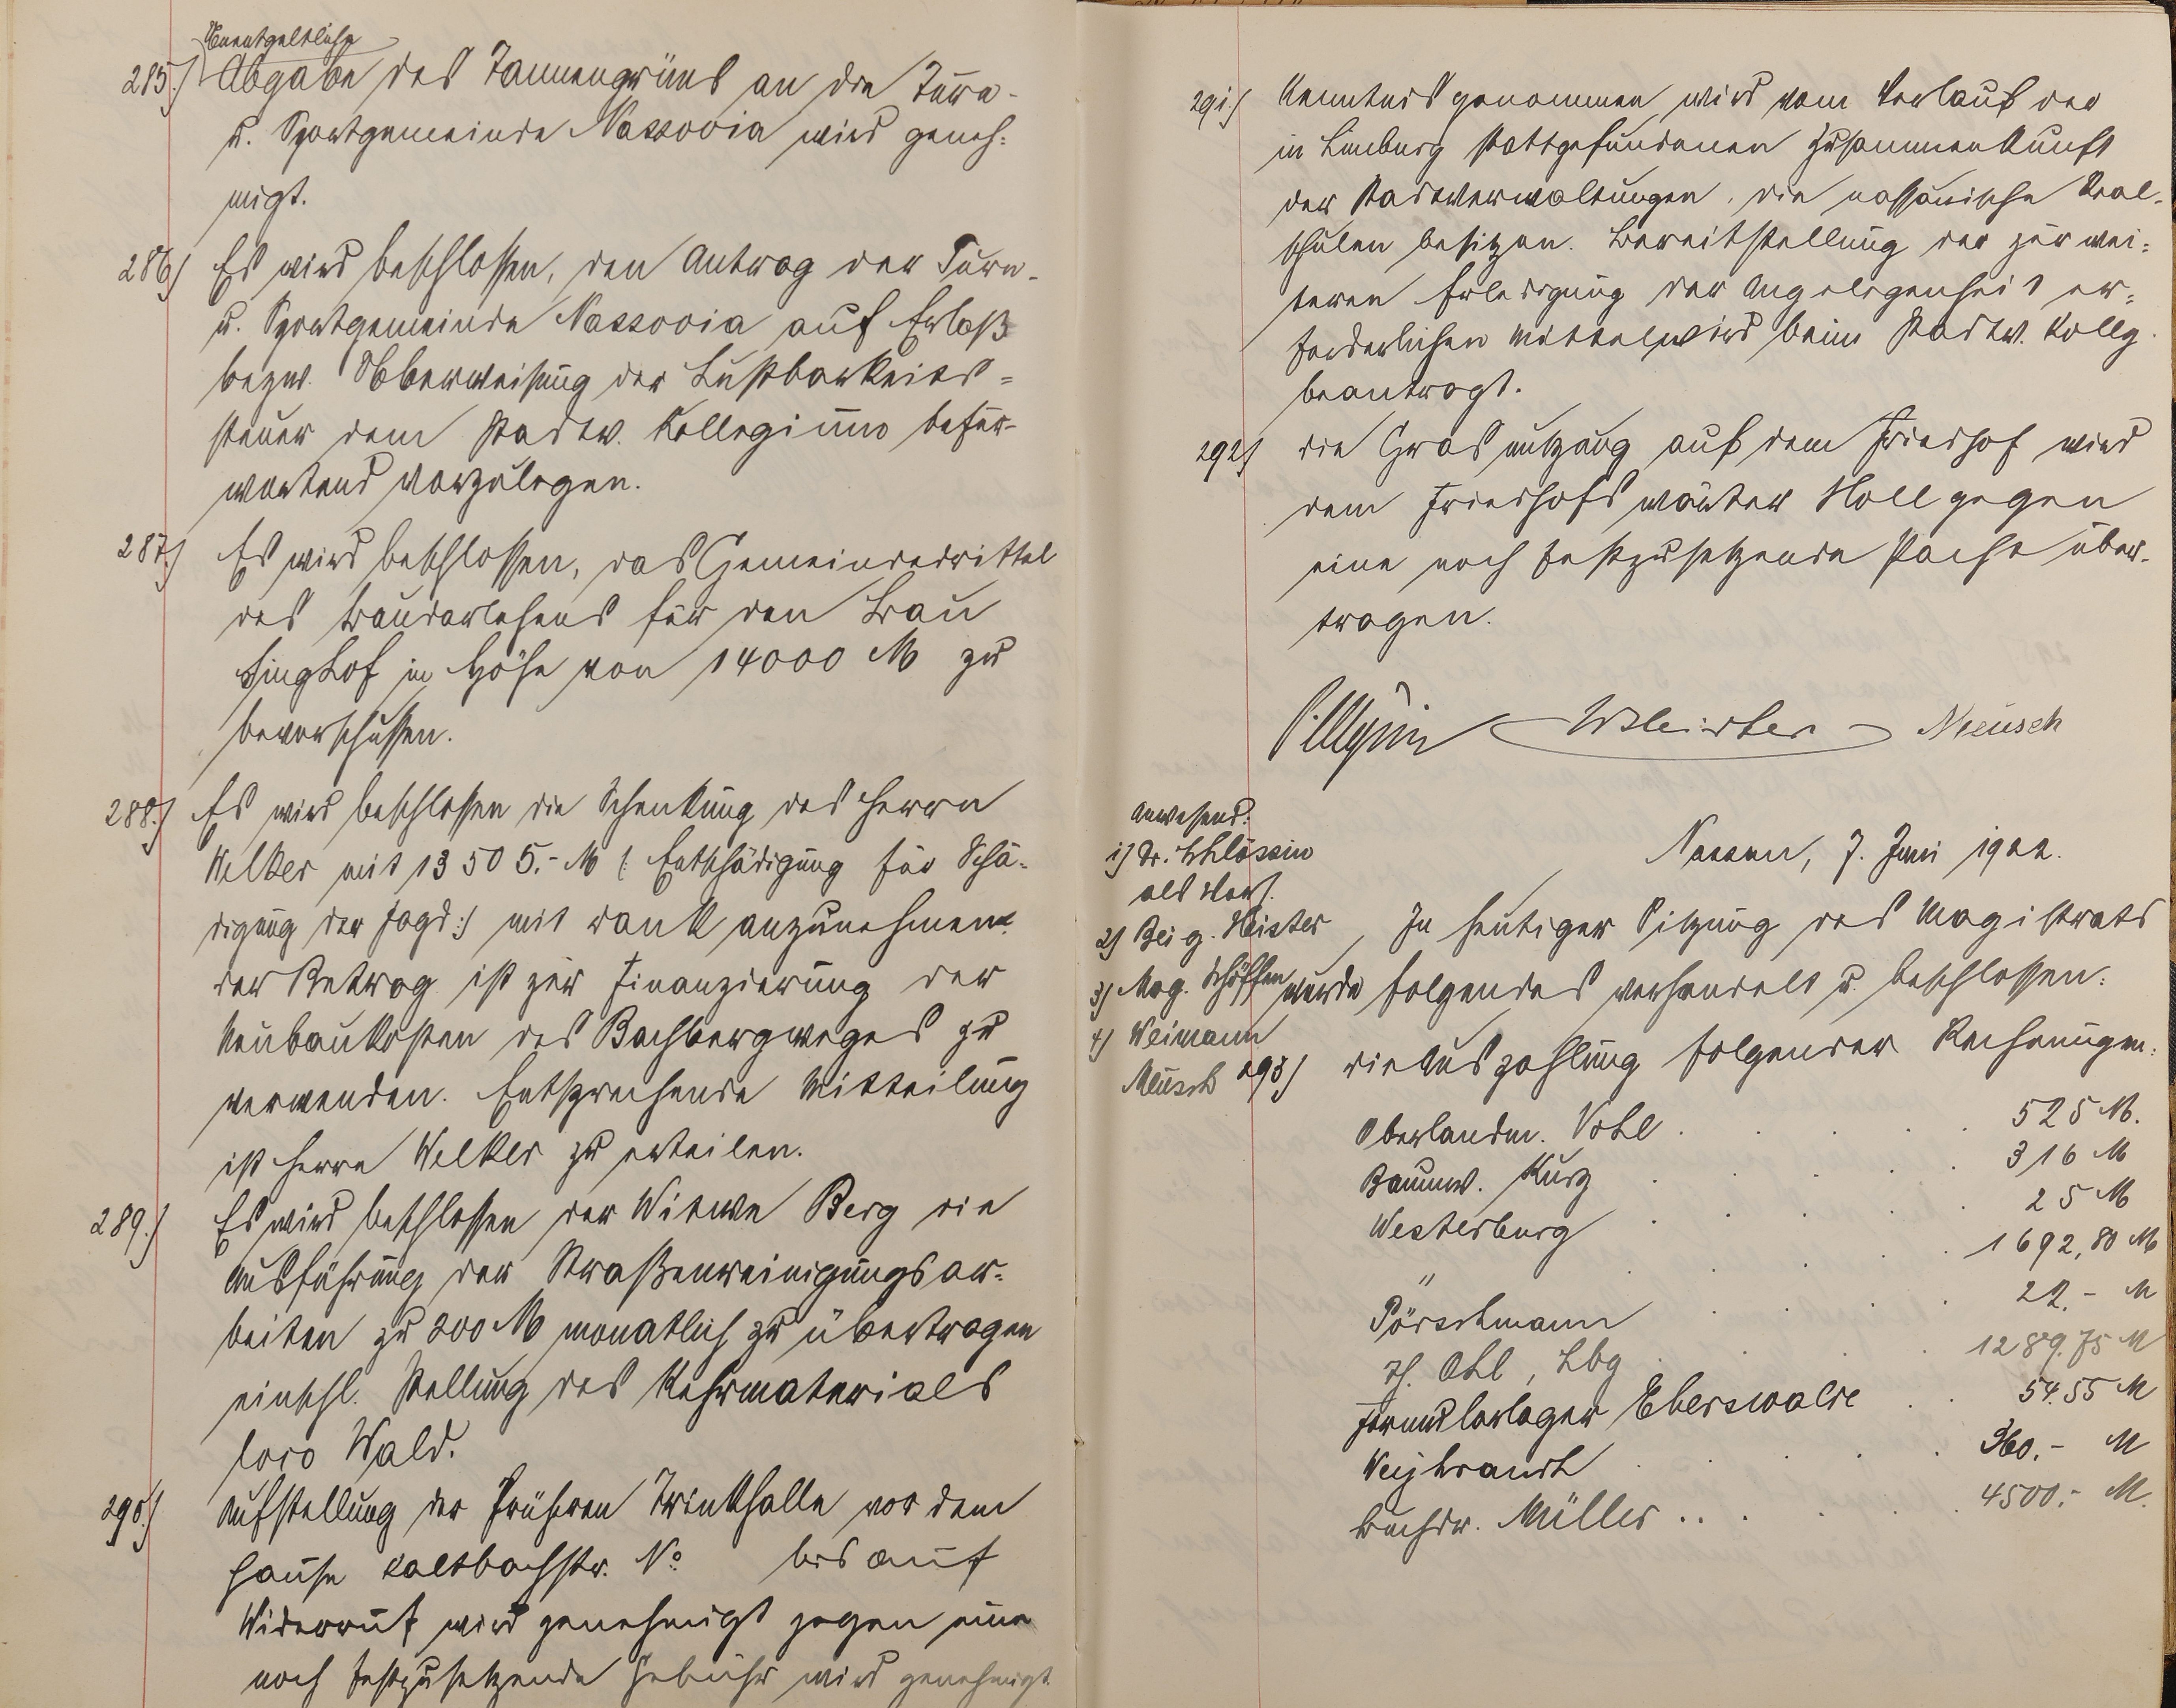 Unentgeltliche
285.) Abgabe des Tannengrüns an die Turn-
u. Sportgemeinde Nassovia wird geneh=
migt.
286) Es wird beschlossen, den Antrag der Turn-
u. Sportgemeinde Nassovia auf Erlaß
bezw. Überweisung der Lustbarkeits=
steuer dem Stadtv. Kollegium befür-
wortend vorzulegen.
287.) Es wird beschlossen, das Gemeindedrittel
des Baudarlehens für den Bau
Singhof in Höhe von 14000 M zu
bevorschussen.
288.) Es wird beschlossen die Schenkung des Herrn
Welker mit 13505.- M (: Entschädigung für Schä-
digung der Jagd :) mit Dank anzunehmen.
Der Betrag ist zur Finanzierung der
Neubaukosten des Bachbergweges zu
verwenden. Entsprechende Mitteilung
ist Herrn Welker zu erteilen.
289.) Es wird beschlossen der Witwe Berg die
Ausführung der Straßenreinigungsar=
beiten zu 200 M monatlich zu übertragen
einschl. Stellung des Kehrmaterials
loco Wald.
290.) Aufstellung der früheren Trinkhalle vor dem
Hause Kaltbachstr. No bis auf
Widerruf wird genehmigt gegen eine
noch festzusetzende Gebühr wird genehmigt
291.) Kenntnis genommen wird vom Verlauf der
in Limburg stattgefundenen Zusammenkunft
der Stadtverwaltungen, die nassauische Real-
schulen besitzen. Bereitstellung der zur wei=
teren Erledigung der Angelegenheit er=
forderlichen Mittel wird beim Stadtv. Kolleg.
beantragt.
292) Die Grasnutzung auf dem Friedhof wird
dem Friedhofswärter Holl gegen
eine noch festzusetzende Pacht über-
tragen.
W Meister Meusch
Anwesend:
1) Dr. Schlössin
als Vors.
2) Beig. Meister
3) Mag. Schöffen
4) Weimann
Meusch
Nassau, 7. Juni 1922.
In heutiger Sitzung des Magistrats
wurde folgendes verhandelt u. beschlossen:
293) Die Auszahlung folgender Rechnungen:
Oberlandm. Vohl . . . . . 525 M.
Baumw. Kurz . . . . . 316 M
Westerburg . . . . . 25 M
" . . . . . 1692,80 M
Pörschmann . . . . 22.- M
Th. Ohl, Lbg . . . . 1289.75 M
Formularlager Eberswalde . . 54.55 M
Weijbrandt . . . . . 360.- M
Buchdr. Müller . . . . . 4500.- M.